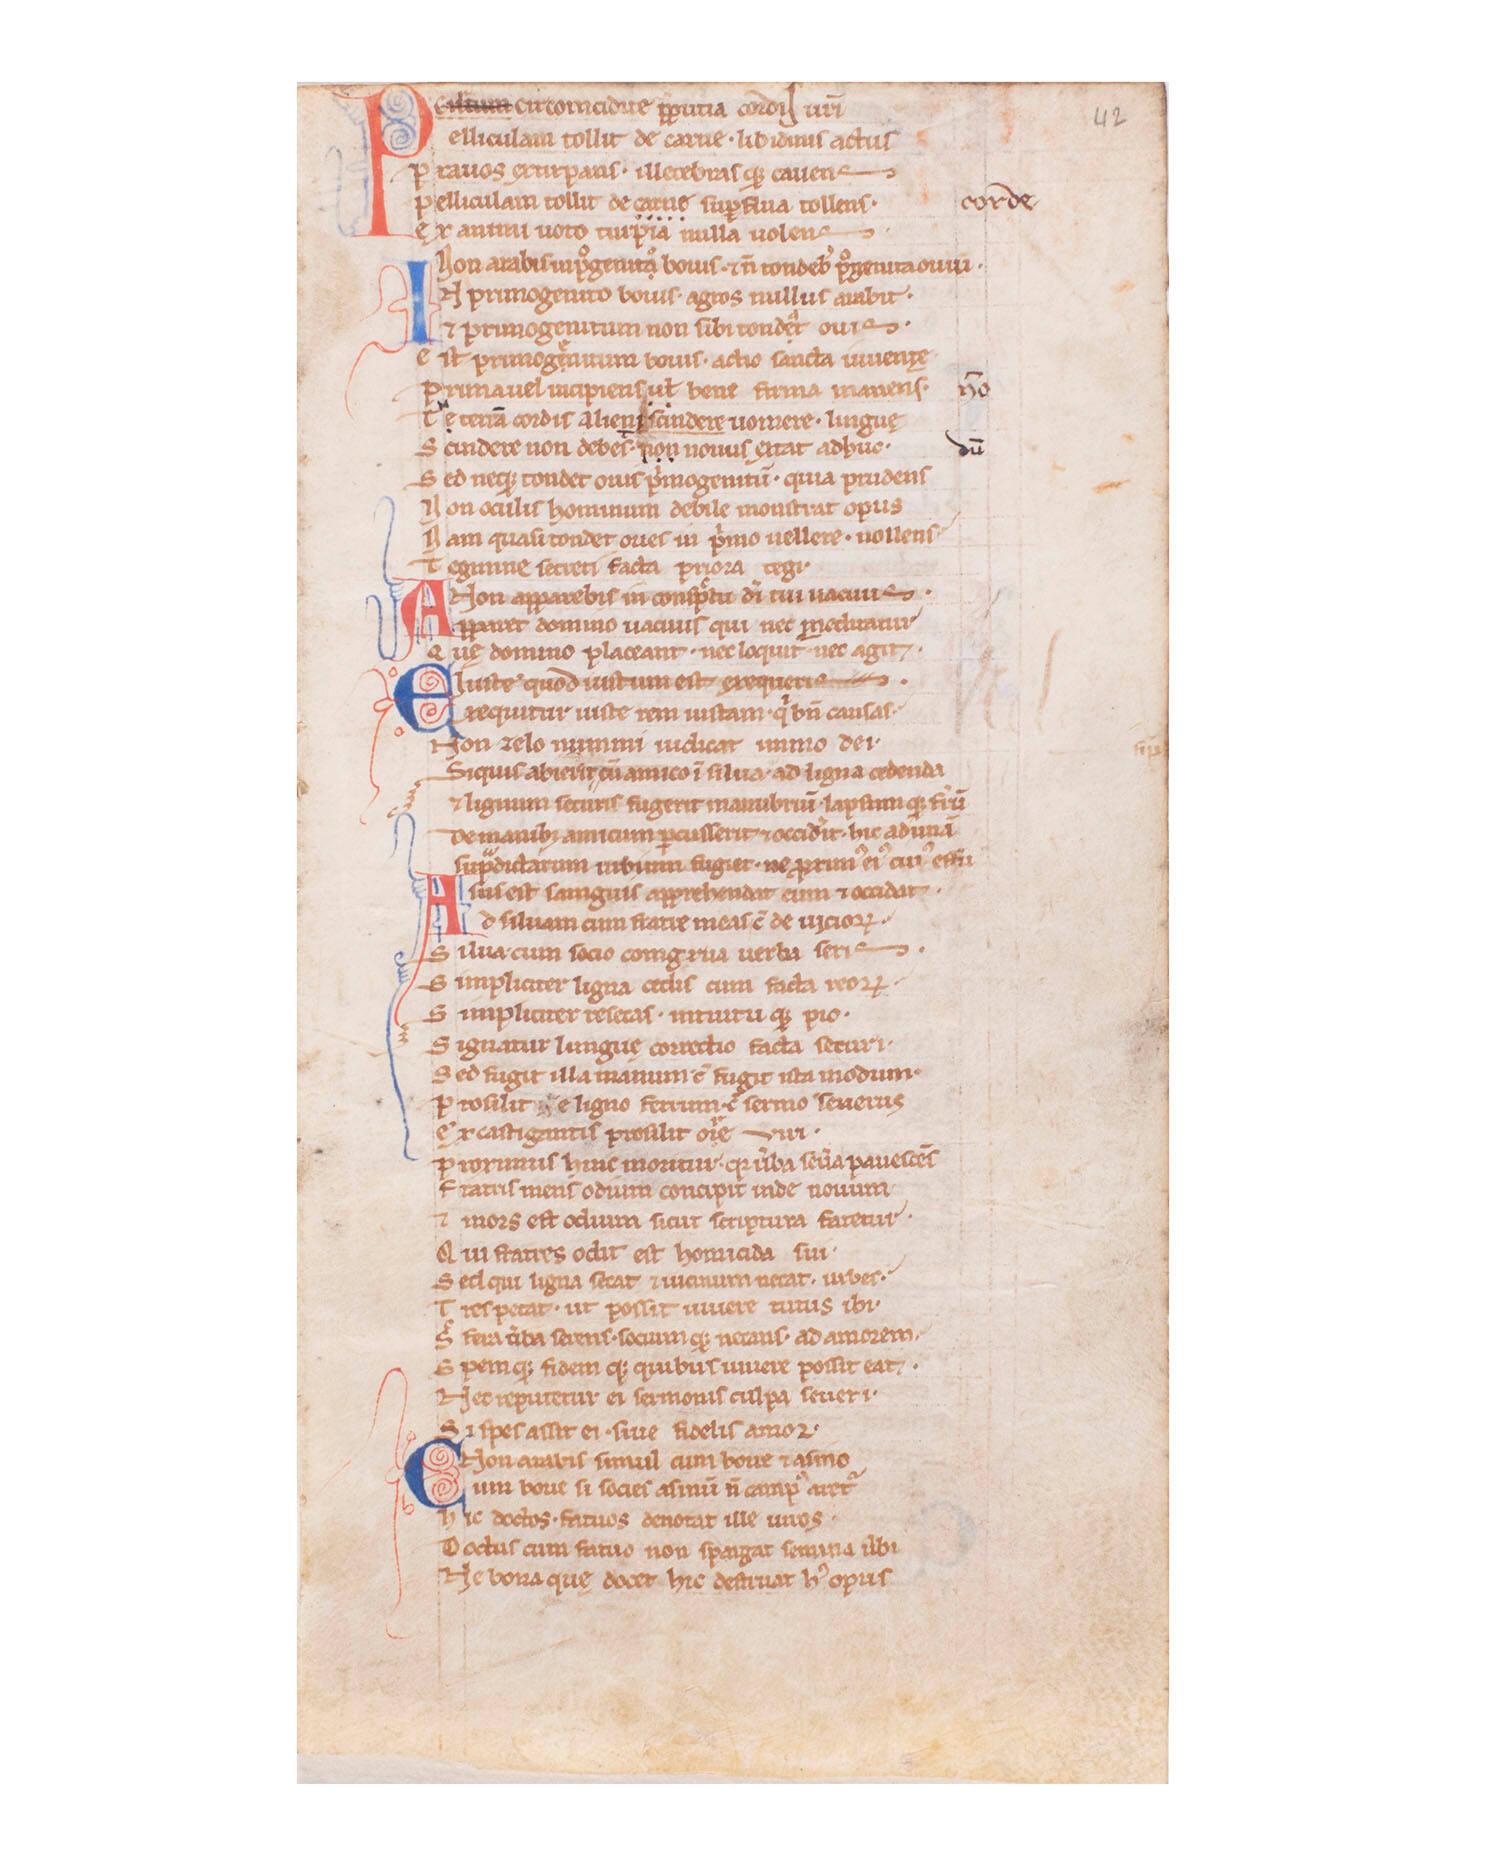 42
circomcidite p̄putia cordis uri̅
Pelliculam tollit de carne · libidinis actus
prauos extirpans · illecebras q; cauens
pelliculam tollit de carne sup̱flua tollens · corde
ex animi uoto turpia nulla uolens ·
Non arabis in p̊genito bouis · ⁊ n̄ tondeb' p̊genita ouiu̅ ·
IN primogenito bouis · agros nullus arabit ·
⁊ primogenitum non sibi tondet ouis ·
est primogenitum bouis · actio sancta iuuente
Prima uel incipiens ul̄ bene firma manens · n̄o
Te terra̅ cordis alieni scindere uomere · lingue
Scindere non debes · non nouus extat adhuc · du̅
Sed neq; tondet ouis p'mogenitu̅ · quia prudens
Non oculis hominum debile monstrat opus
Nam quasi tondet oues in p'mo uellere · nollens
Tegmine secreti facta priora tegi ·
Non apparebis in consp̄tu di̅ tui uacuus ·
Apparet domino uacuus qui nec meditatur
Que domino placeant · nec loquit̄ nec agit ·
Iuste quod iustum est exequeris ·
Exequitur iuste rem iustam · q' bn̄ causas ·
Non zelo nummi iudicat immo dei ·
Siquis abierit cu̅ amico i̅ silua · ad ligna cedenda
⁊ lignum securis fugerit manubriu̅ · lapsum q; fr̄u̅
De manib; amicum p̱cusserit ⁊ occid'it · hic ad una̅
sup̄dictarum urbium fugiet · ne proxim' ei' cui' effu̅
sus est sanguis apprehendat eum ⁊ occidat ·
Ad siluam cum fratre meas c̄ de uicioꝝ ·
Silua · cum socio congrua uerba seris ·
Simpliciter ligna cedis cum facta reoꝝ ·
Simpliciter resecas · intuitu q; pio ·
Signatur lingue correctio facta securi ·
Sed fugit illa manum · c̄ fugit ista modum ·
Prosilit e ligno ferrum · c̄ sermo seuerus
ex castigantis prosilit ore uiri ·
Proximus hinc moritur · q; ūba seūa pauesce̅s
Fratris mens odium concipit inde nouum
⁊ mors est odium sicut scriptura fatetur ·
Qui fratres odit est homicida sui ·
Sed qui ligna secat ⁊ uicinum necat · urbes ·
Tres petat · ut possit uiuere tutus ibi ·
S fera ūba serens · socium q; necans · ad amorem ·
Spem q; fidem q; quibus uiuere possit eat ·
Nec reputetur ei sermonis culpa seueri ·
Si spes assit ei · siue fidelis amor ·
Non arabis simul cum boue ⁊ asino
Cum boue si socies asinu̅ n̄ camp' aret'
hic doctos · fatuos denotat ille uiros ·
Doctus cum fatuo non spargat semina ūbi
Ne bona que docet hic destruat h' opus